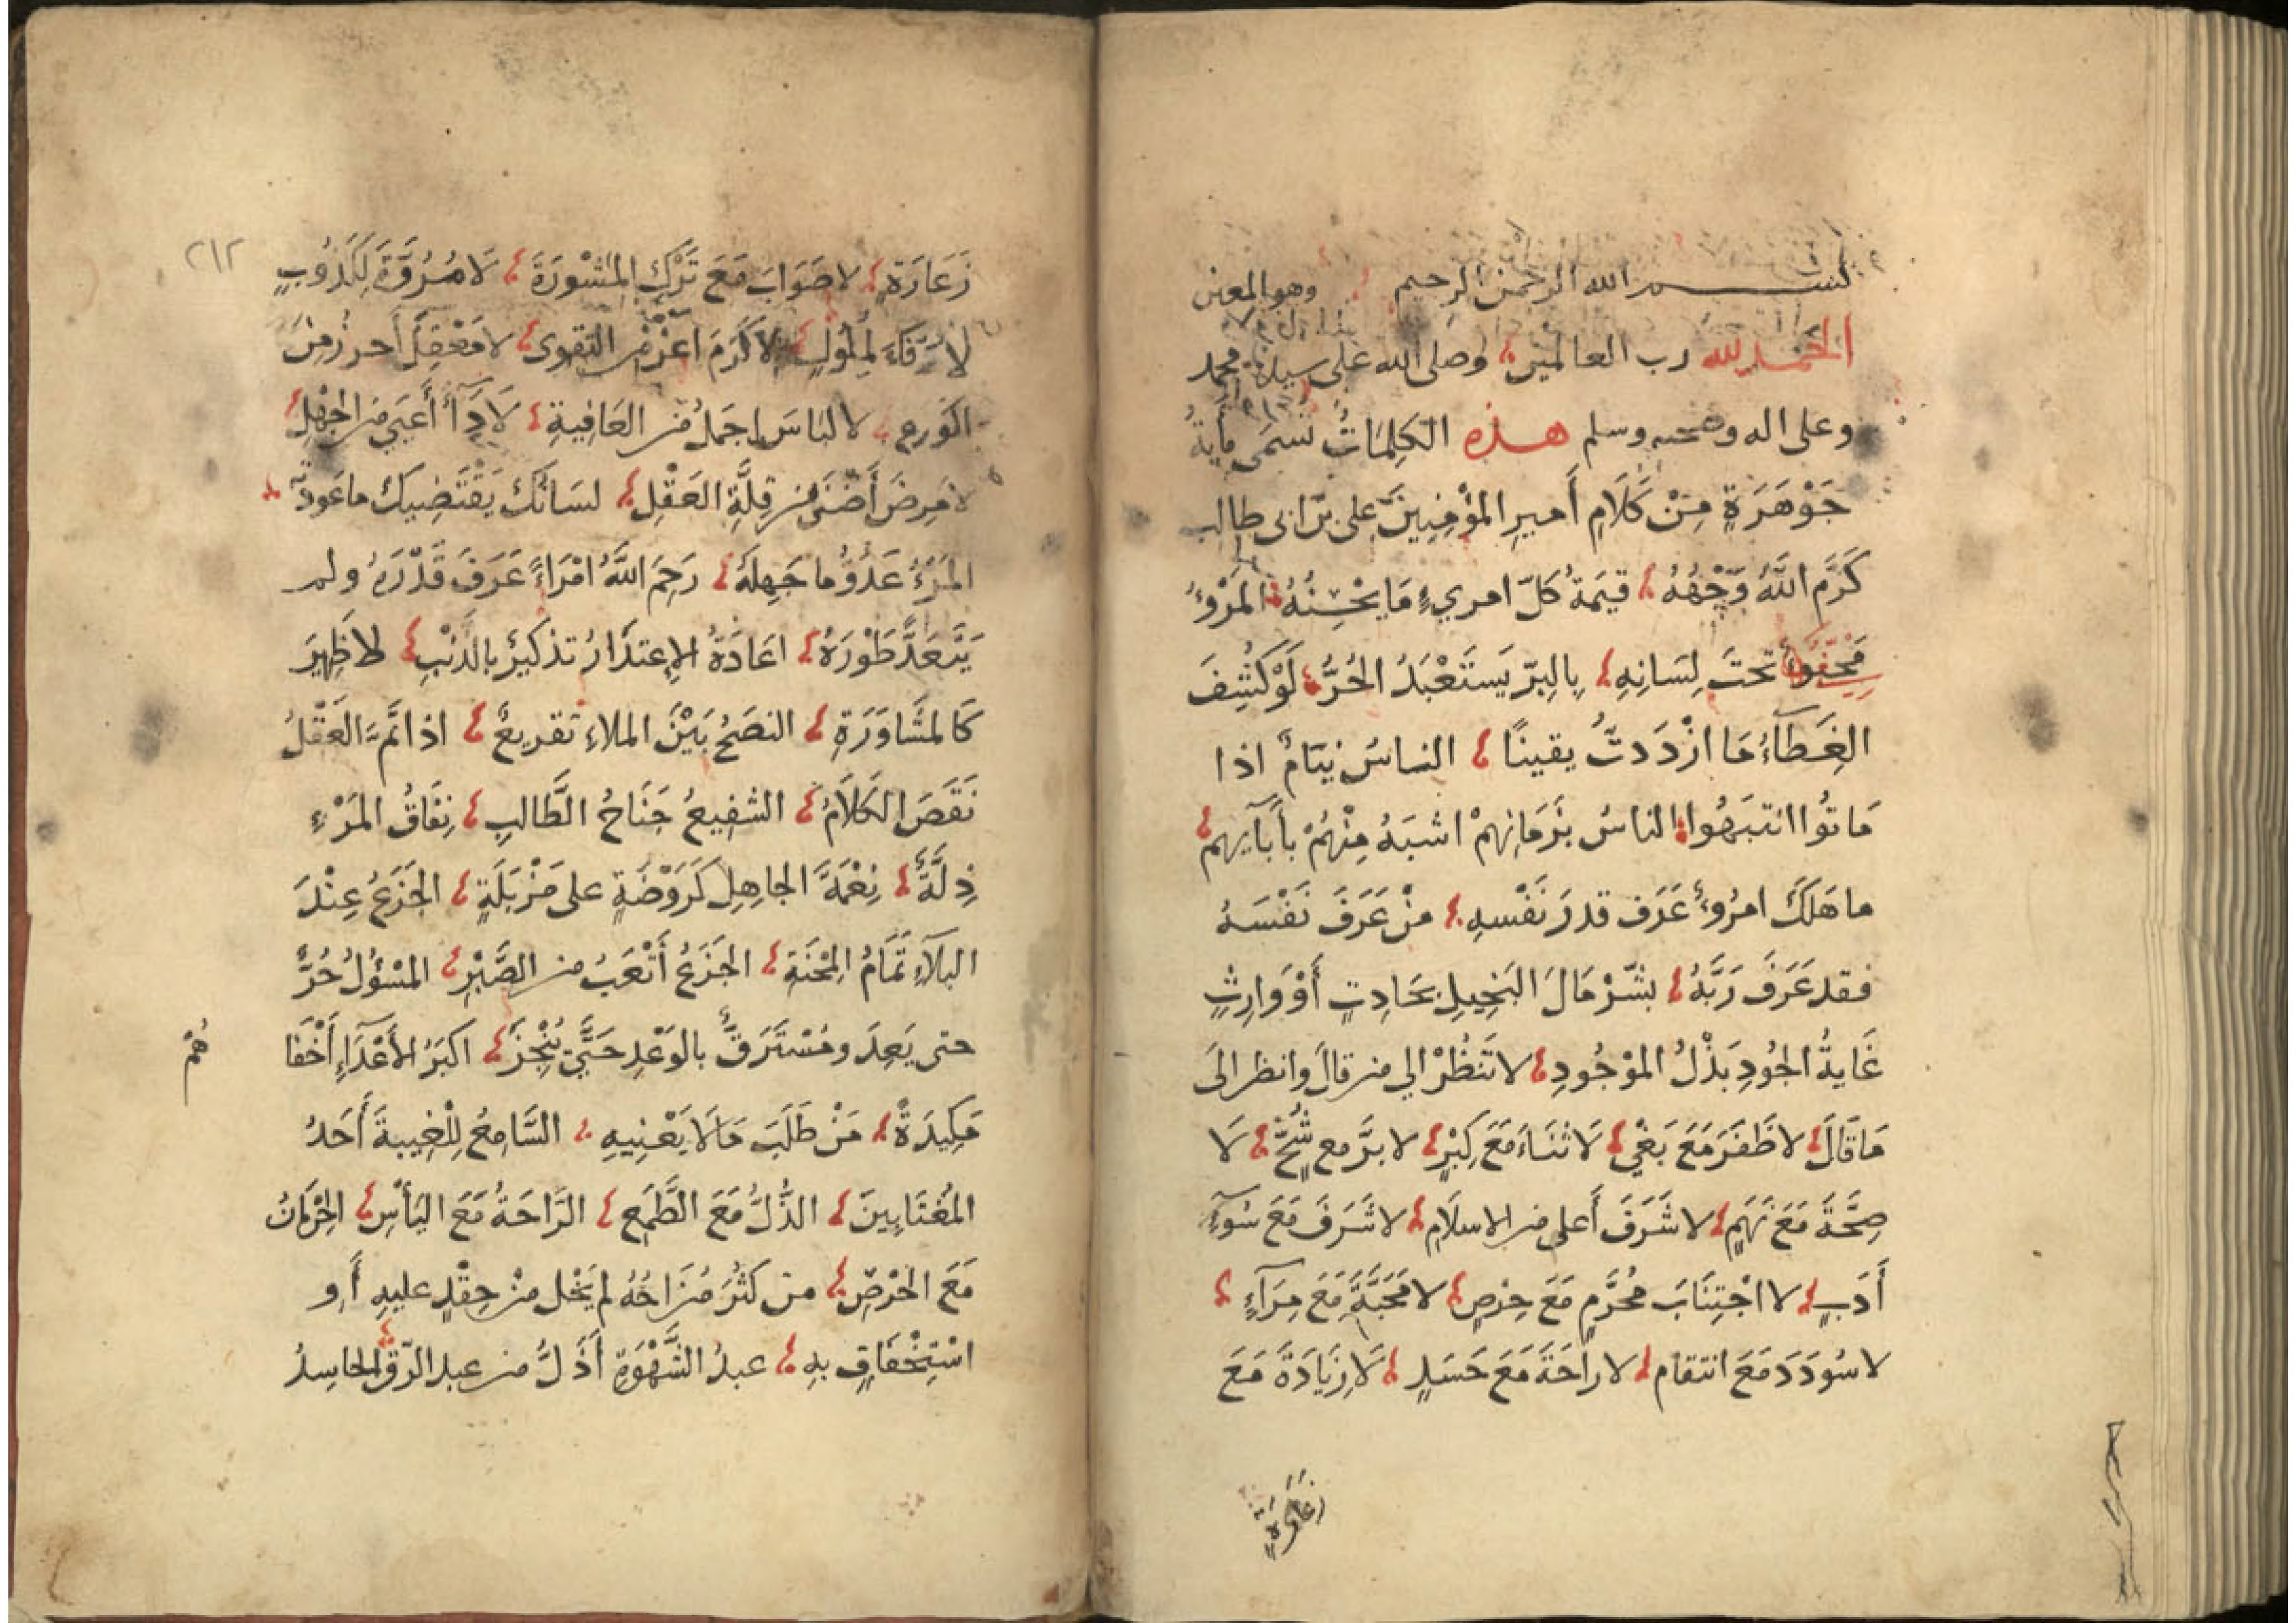 بسم الله الرحمن الرحيم وهو المعين
الحمد لله رب العالمين وصلى الله على سيدنا محمد
وعلى اله وصحبه وسلم هذه الكلِمَاتُ تسمى مِايةُ
جَوْهَرَةٍ مِنْ كَلَامِ أَميرِ المؤْمِنِينَ على بن ابى طالب
كَرَّمَ اللَّهُ وَجْهَهُ قيمَةُ كلّ امرىءٍ مَا يحْسِنُهُ المَرْؤُ
مَخْبُوءٌ تحتَ لِسَانِهِ بِالبِرّ يَستَعْبَدُ الحُرُّ لَوْ كُشِفَ
الغِطَآءُ مَا ازْدَدتُ يقينًا الناسُ نِيَامٌ اذا
مَاتُوا انتبَهُوا الناسُ بزَمَانِهمْ اشبَهُ مِنْهُمْ بأَبآيهِم
ما هَلَكَ امرُؤٌ عَرَف قدرَ نَفْسهِ منْ عَرَفَ نَفْسَهُ
فقد عَرَفَ رَبَّهُ بشّرْ مَالَ البَخِيلِ بحَادِثٍ أَوْ وَارِثٍ
غَايةُ الجُودِ بَذْلُ الموْجُودِ لا تَنظُرْ الي من قالَ وانظر الىَ
مَا قَالَ لا ظَفَرَ مَعَ بَغْيٍ لَا ثنَاءَ مَعَ كِبْرٍ لا برَّ مع شُحٍّ لَا
صِحَّةَ مَعَ نَهَمٍ لا شَرَفَ أَعلى من الاسلَامِ لا شَرَفَ مَعَ سُوءِ
أَدَبٍ لا اجْتِنَابَ مُحَرَّمٍ مَعَ حِرْصٍ لا مَحَبَّةَ مَعَ مِرَآءٍ
لا سُودَدَ مَعَ انتقامٍ لا راحَةَ مَعَ حَسَدٍ لَا زِيَادَةَ مَعَ
زعَارَةٍ
٢١٢
زَعَارَةٍ لا صَوَابَ مَعَ تَرْكِ المشْوَرَةَ لَا مُرُوَّةَ لِكَذُوبٍ
لا وفَاءَ لِملُولٍ لا كَرَمَ اعز من التقوى لا مَعْقِلَ أَحرزُ مِنَ
الوَرعِ لا لبَاسَ اجمَلُ من العَافِيةِ لَا دَآءَ أَعيَى من الجَهْلِ
لا مرضَ أَضْنَى من قِلَّةِ العَقْلِ لسَانُكَ يَقْتَضِيكَ ما عَودتَه
المَرْءُ عَدُوُّ ما جَهِلَهُ رَحِمَ اللَّهُ امْرَاءً عَرَفَ قَدْرَهُ ولم
يَتَعَدَّ طَوْرَهُ اعَادَةُ الإِعتذَارُ تذكيرٌ بالذنْبِ لا ظَهِيرَ
كَالمشَاوَرَةِ النصَحُ بَيْنَ الملاءِ تقريعٌ اذا تَمَّ العَقْلُ
نَقَصَ الكَلَامُ الشفِيعُ جَنَاحُ الطَّالبِ نِفَاقُ المَرْءِ
ذِلَّةٌ نِعْمَةُ الجاهِلِ كَرَوْضَةٍ على مَزْبَلَةٍ الجَزَعُ عِنْدَ
البَلآءِ تَمَامُ المِحْنَةِ الجَزَعُ أَتْعَبُ من الصَّبْرِ المسْؤلُ حُرٌّ
حتى يَعِدَ ومُسْتَرَقٌّ بالوَعْدِ حَتَّى يُنْجِزَ اكبَرُ الأَعْدَآءِ أَخْفَاهُم
مَكِيدَةً مَنْ طَلَبَ مَا لَا يَعْنِيهِ السَّامِعُ لِلْغِيبةَ أَحَدُ
المُغتَابِينَ الذُّلُّ مَعَ الطَّمَع الرَّاحَةُ مَعَ اليَأسِ الحِرْمَانُ
مَعَ الحرْصِ من كَثُرَ مُزَاحُهُ لم يَخْل منْ حِقْدٍ عليهِ أَو
اسْتِخْفَافٍ بهِ عبدُ الشَّهْوَةِ أَذَلُّ من عبد الرّق الحاسِدُ